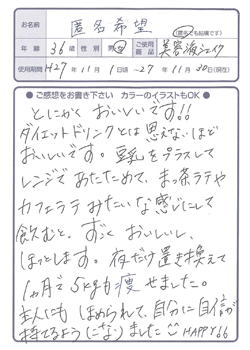 お名前 匿名希望
(匿名でも結構です)
年齢 36歳 性別 男・女 ご使用商品 美容液シェイク
使用期間 H27年11月1日頃~27年11月30日(現在)
●ご感想をお書き下さい カラーのイラストもOK●
とにかく おいしいです!!
ダイエットドリンクとは思えないほど
おいしいです。豆乳をプラスして
レンジであたためて、まっ茶ラテや
カフェラテみたいな感じにして
飲むと、すごくおいしいし、
ほっとします。夜だけ置き換えて
1ヵ月で5kgも痩せました。
主人にもほめられて、自分に自信が
持てるよう(になり)ました HAPPY